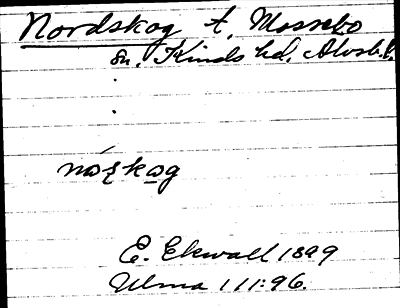 Nordskog t. Mossebo
sn. Kinds hd. Älvsb. l.
nóʂkɑg
E. Ekwall 1899
Ulma 111:96.